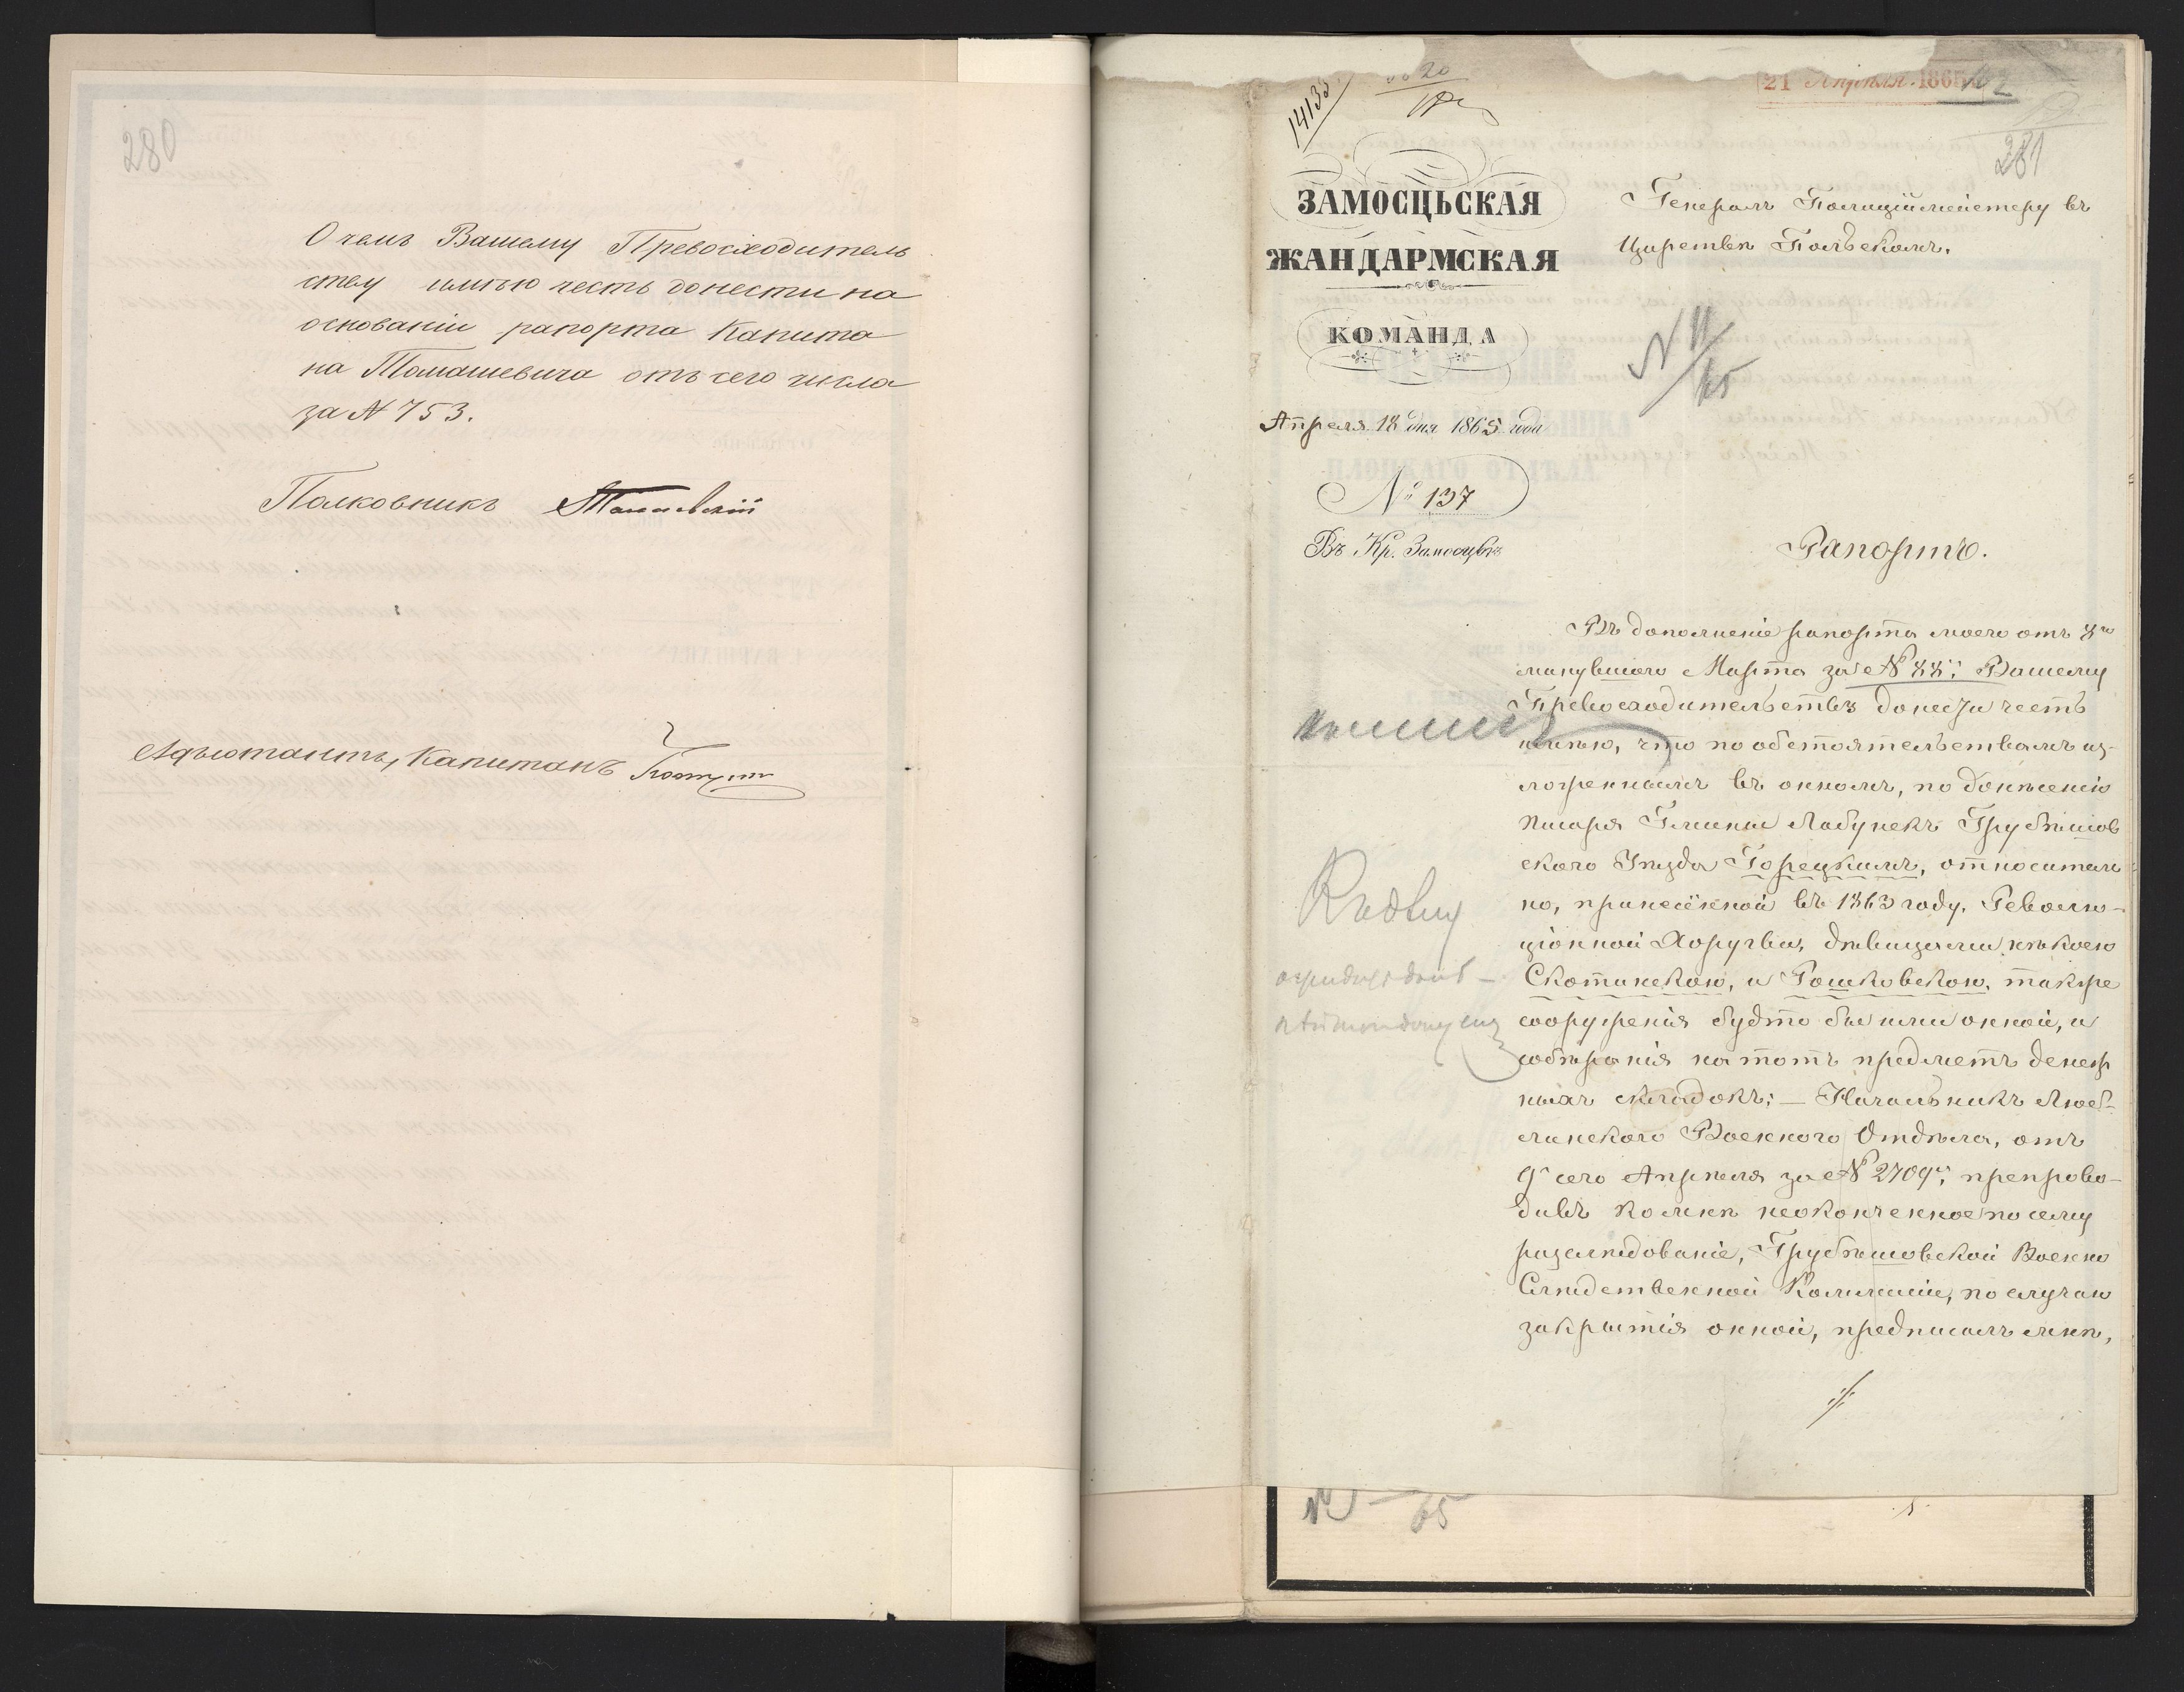 280
О чемъ Вашему Превосходитель
ству имѣю честь донести на
основаніи рапорта Капита
на Томашевича отъ сего числа
за № 753.
Полковникъ
Адъютантъ, Капитанъ
14133
20
21 Апрѣля 1865
281
ЗАМОСЦЬСКАЯ
ЖАНДАРМСКАЯ
КОМАНДА
Апреля 18 дня 1865 года
№ 137
Въ Кр. Замосцьѣ
Генералъ Полиціймейстеру въ
Царствѣ Польскомъ.
N 11/65
Рапортъ.
Въ дополненіе рапорта моего отъ 8го
минувшаго Марта за № 88; Вашему
Превосходительству донести честь
имѣю, что по обстоятельствамъ из-
ложеннымъ въ ономъ, по донесенію
писаря Гмины Лабунекъ Грубѣшов
скаго Уѣзда Горецкимъ, относитель
но, принесённой въ 1863 году, Револю-
ціонной Хоругви, дѣвицами нѣкоею
Скотинскою, и Рошковскою, также
сооруженія будто бы ими онной, и
собиранія на тотъ предметъ денеж
ныхъ складокъ; — Начальникъ Люб-
линскаго Военнаго Отдѣла, отъ
9 сего Апрѣля за № 2709; препрово-
дивъ ко мнѣ неоконченное по сему
разслѣдованіе, Грубѣшовской Военно
Слѣдственной Коммисіи, по случаю
закрытія онной, предписалъ мнѣ,
65